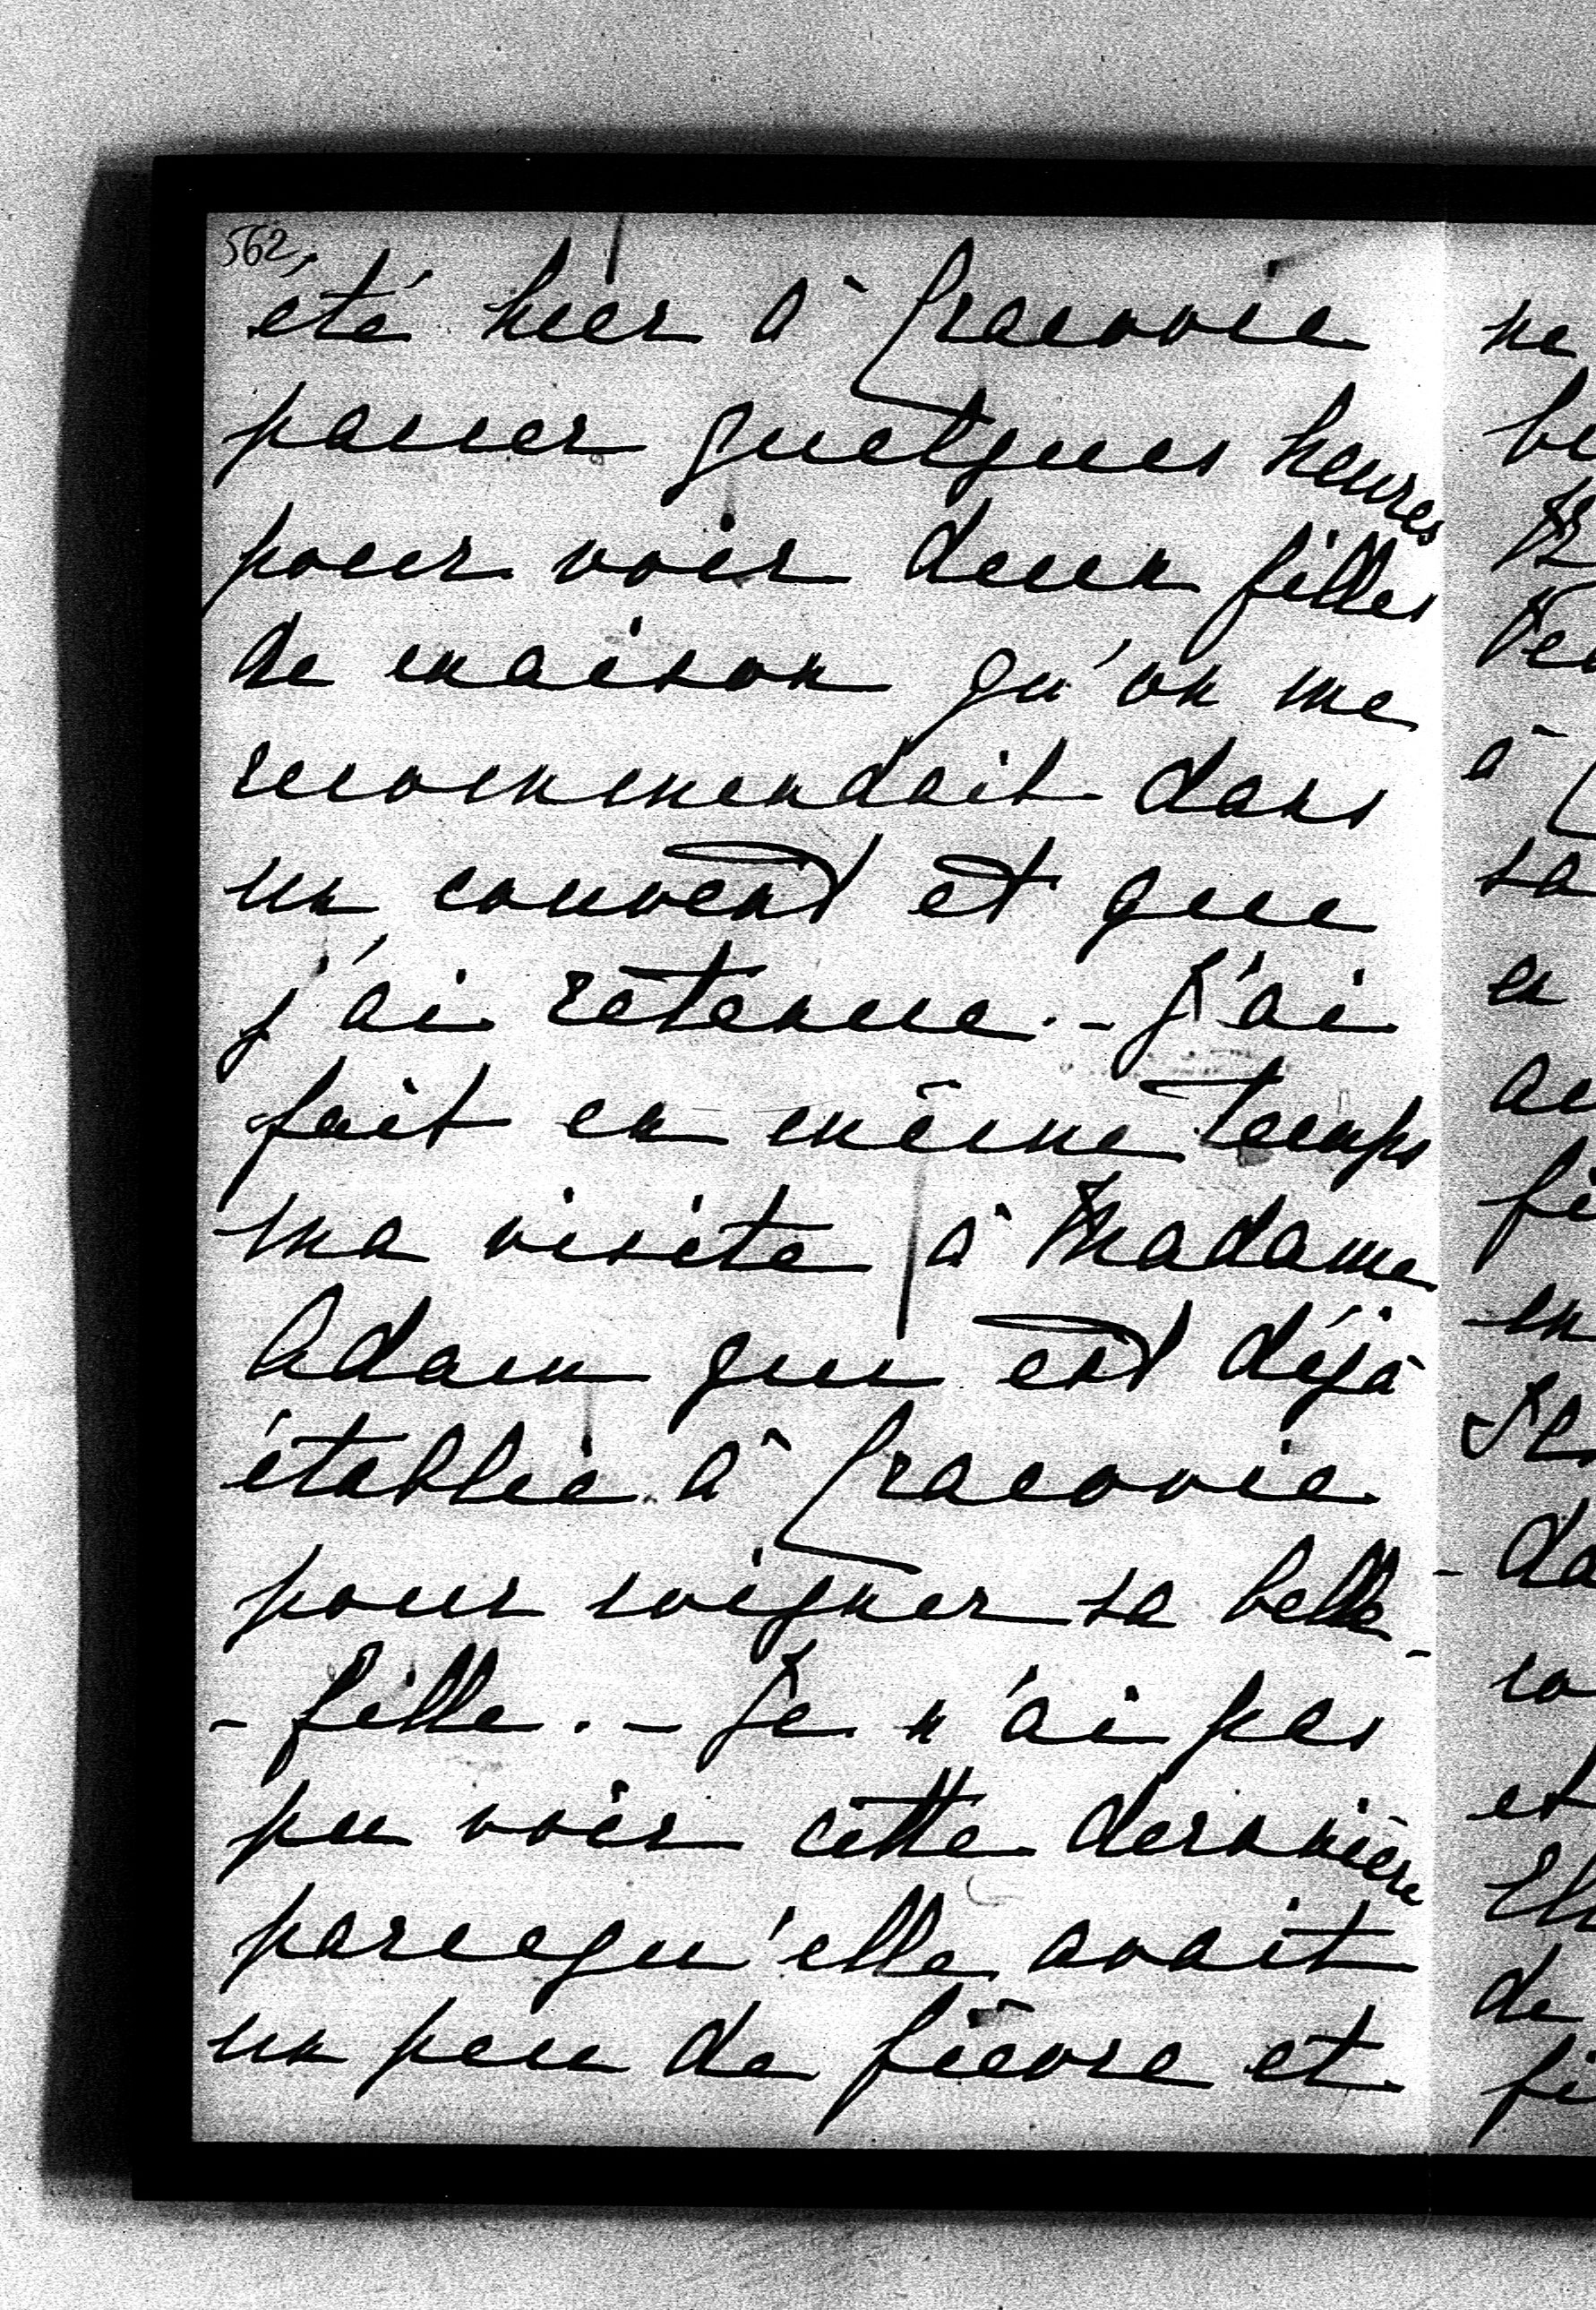 562
été hier à Cracovie
passer quelques heures
pour voir deux filles
de maison qu'on me
recommendait dans
un couvent et que
j'ai retenue. - J'ai
fait en même temps
ma visite à Madame
Adam qui est déjà
établie à Cracovie
pour soigner sa belle-
- fille. - Je n'ai pas
pu voir cette dernière
parcequ'elle avait
un peu de fièvre et